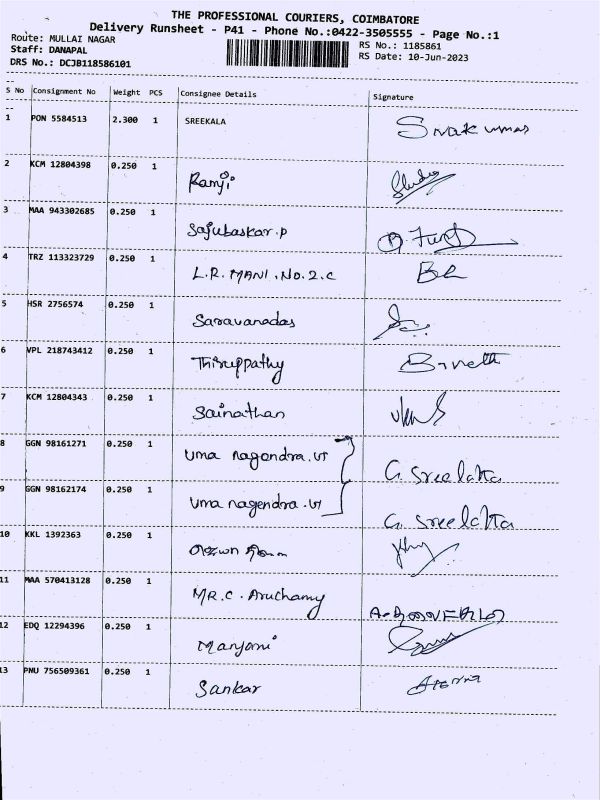 THE PROFESSIONAL COURIERS, COIMBATORE
Delivery Runsheet - P41 - Phone No.:0422-3505555 - Page No.:1
Route: MULLAI NAGAR
Staff: DANAPAL
DRS No.: DCJB118586101
RS No.: 1185861
RS Date: 10-Jun-2023
S No Consignment No Weight PCS Consignee Details Signature
1 PON 5584513 2.300 1 SREEKALA
2 KCM 12804398 0.250 1 Ramji
3 MAA 943302685 0.250 1 Sajubaskar.p
4 TRZ 113323729 0.250 1 L.R. MANI. No.2.C
5 HSR 2756574 0.250 1 Saravanadas
6 VPL 218743412 0.250 1 Thiruppathy
7 KCM 12804343 0.250 1 Sainathan
8 GGN 98161271 0.250 1 Uma nagendra.VT G. Sreelatha
9 GGN 98162174 0.250 1 Uma nagendra.VT G. Sreelatha
10 KKL 1392363 0.250 1
11 MAA 570413128 0.250 1 MR.C. Aruchamy
12 EDQ 12294396 0.250 1
13 PNU 756509361 0.250 1 Sankar